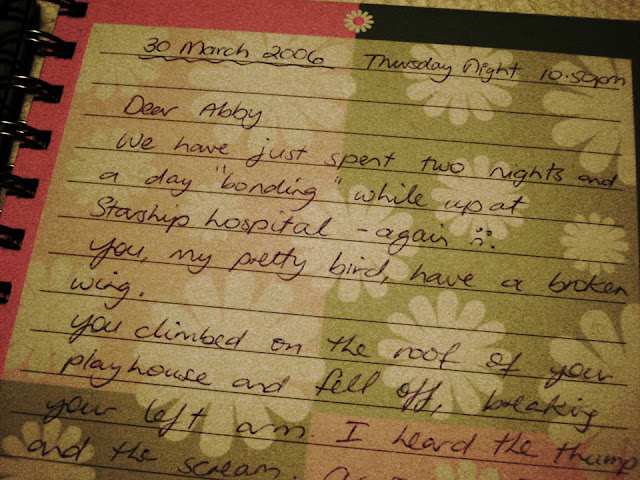 30 March 2006 Thursday Night 10.50pm
Dear Abby
We have just spent two nights and
a day "bonding" while up at
Starship hospital - again
you, my pretty bird, have a broken
wing.
you climbed on the roof of your
playhouse and fell off, breaking
your left arm. I heard the thump
and the scream.